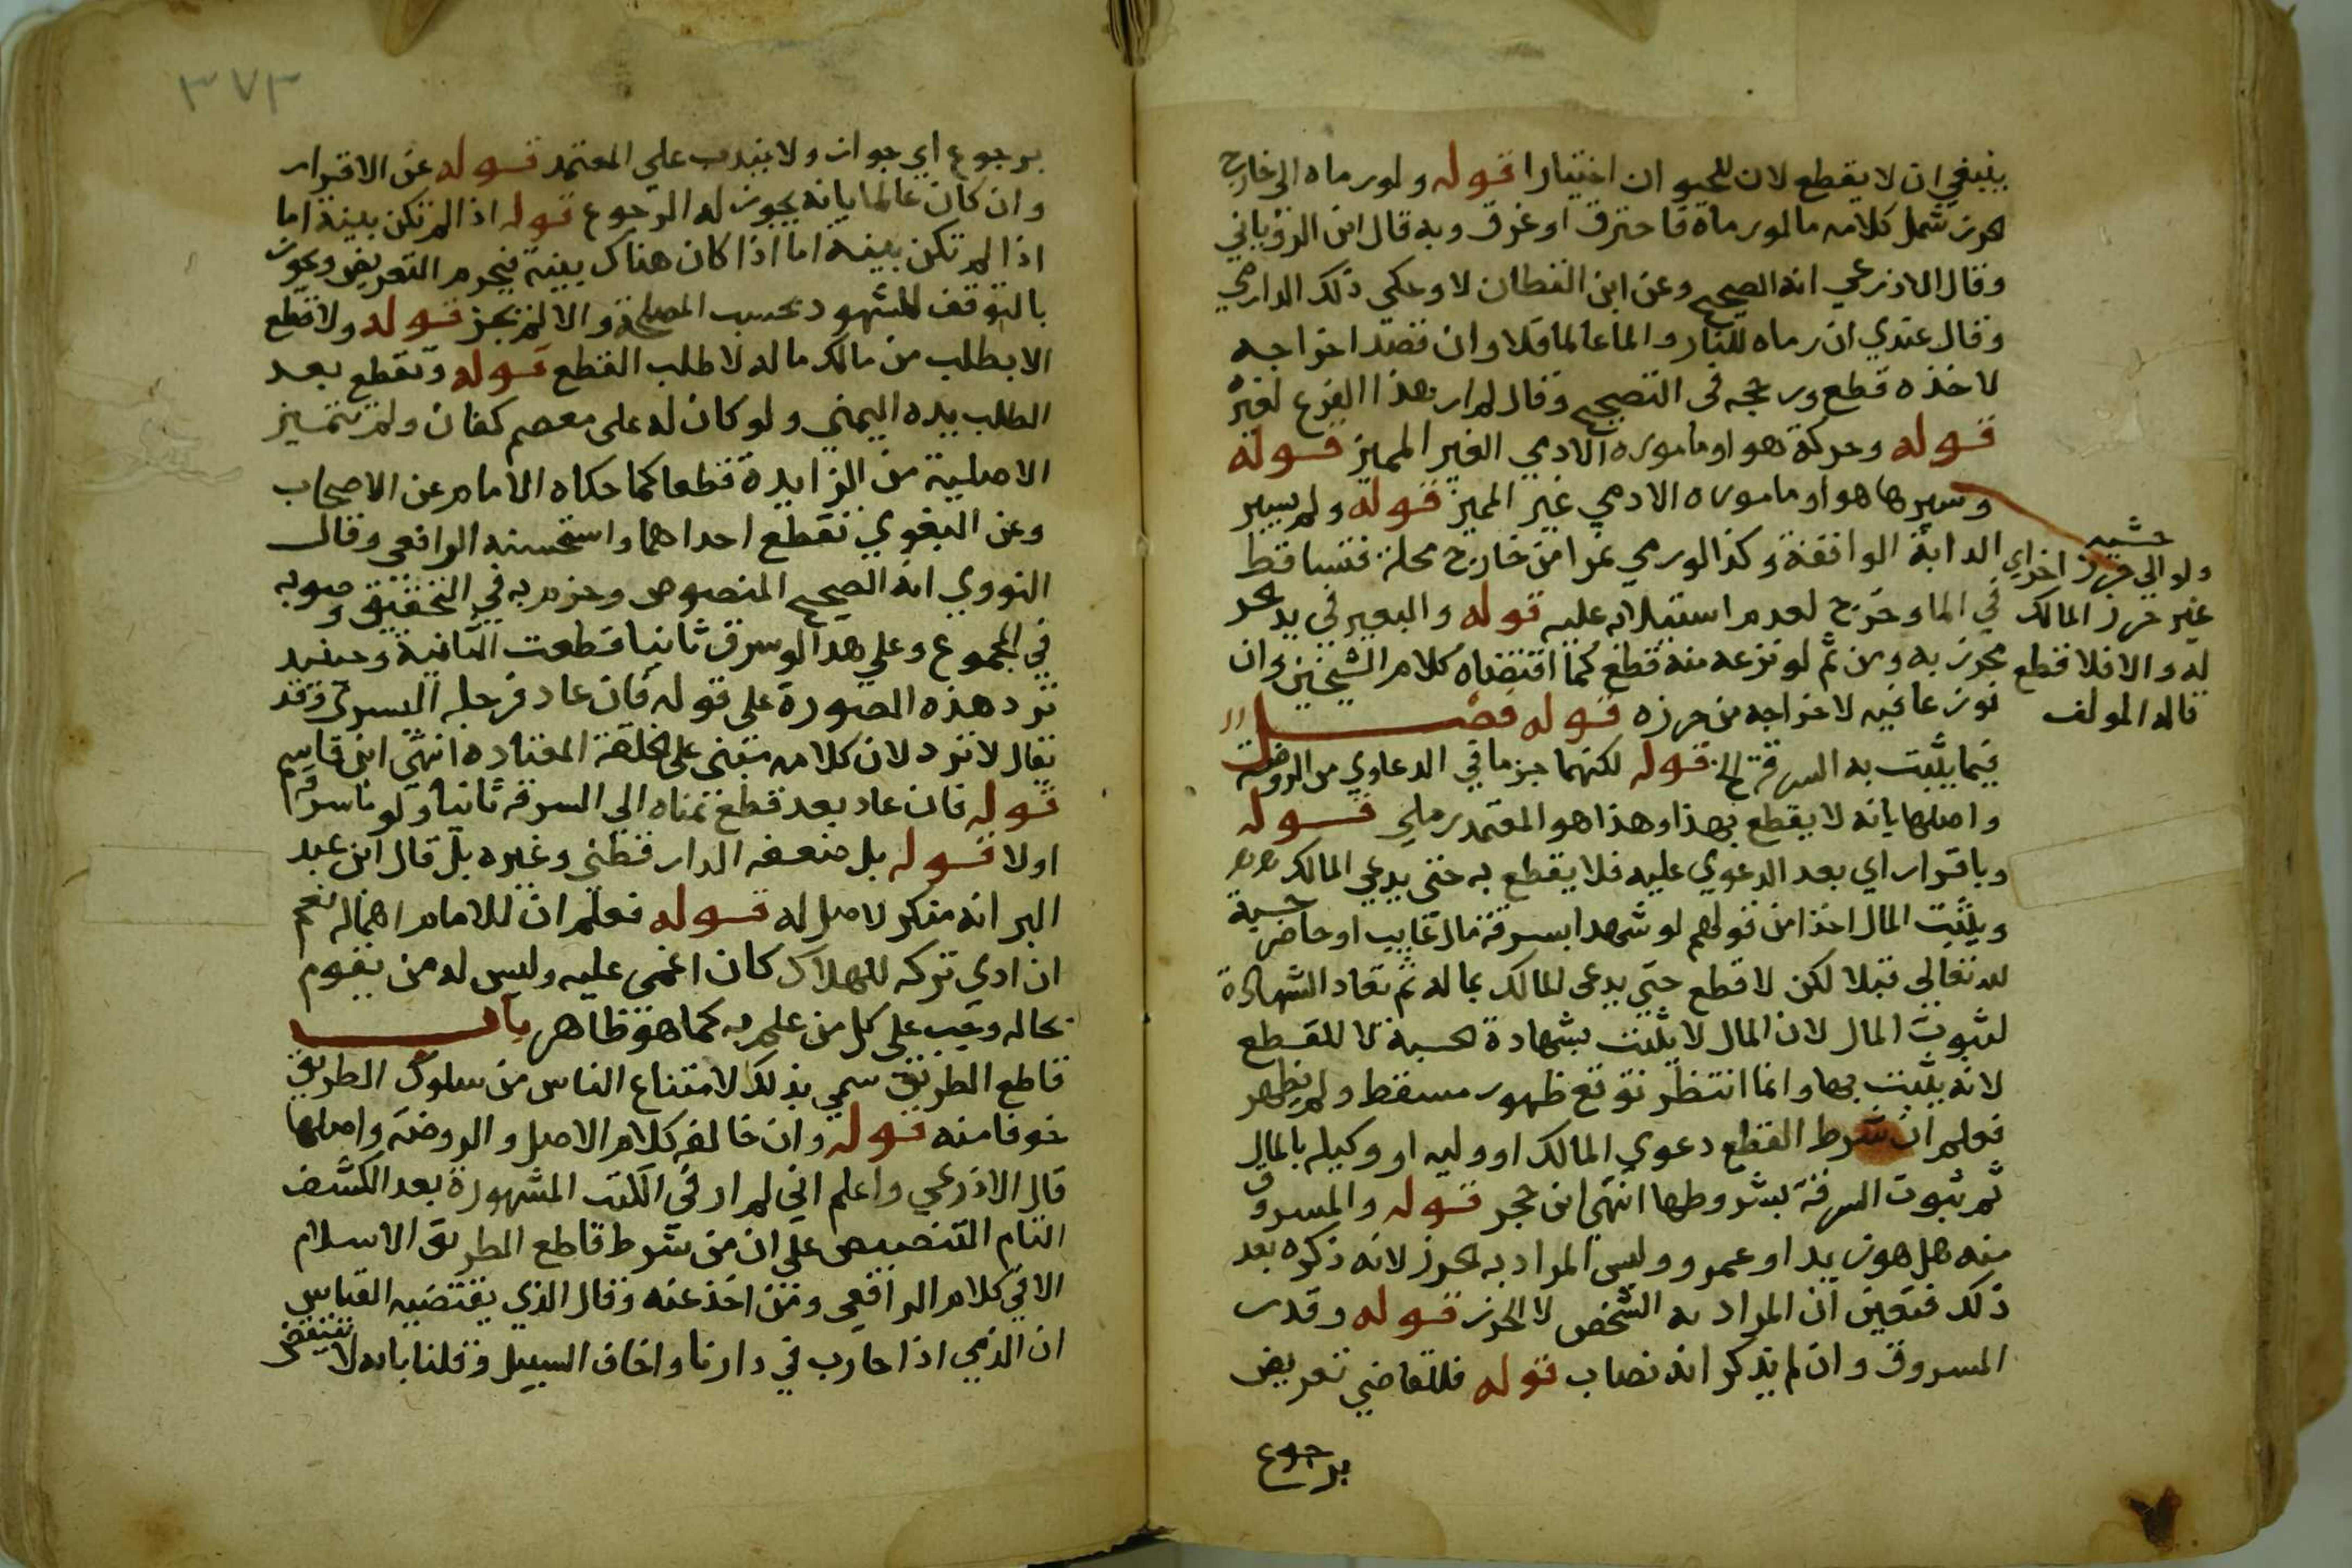 ينبغي ان لا يقطع لان للحيوان اختيارا قوله ولو رماه الى خارج
حرز شمل كلامه ما لو رماه فاحترق او غرق وبه قال ابن الروياني
وقال الاذرعي انه الصحيح وعن ابن القطان لا وحكى ذلك الدارمي
وقال عندي ان رماه للنار والما عالما فلا وان قصد اخراجه
لاخذه قطع ورجحه في التصحيح وقال لم ار هذا الفرع لغيره
قوله وحركة هو او ماموره الادمي الغير المميز قوله
وسيرها هو او ماموره الادمي غير المميز قوله ولم يسير
الدابة الواقفة وكذا لو رمي ثمرا من خارج محله فتساقط
في الما وخرج لعدم استيلائه عليه قوله والبعير في يد
محرز به ومن ثم لو نزعه منه قطع كما اقتضاه كلام الشيخين وان
نوزعا فيه لاخراجه من حرزه قوله فصل
فيما يثبت به السرقة الخ قوله لكنهما جزما في الدعاوي من الروضة
واصلها بانه لا يقطع بهذا وهذا هو المعتمد رملي قوله
وباقرار اي بعد الدعوي عليه فلا يقطع به حتى يدعي المالك
ويثبت المال اخذا من قولهم لو شهدا بسرقة مال غايب او حاضر حسبة
لله تعالى قبلا لكن لا قطع حتي يدعى المالك بماله ثم تعاد الشهادة
لثبوت المال لان المال لا يثبت بشهادة الحسبة لا للقطع
لانه يثبت بها وانما انتظر توقع ظهور مسقط ولم يظهر
فعلم ان شرط القطع دعوي المالك او وليه او وكيله بالمال
ثم ثبوت السرقة بشروطها انتهي ابن حجر قوله والمسروق
منه هل هو زيد او عمرو وليس المراد به الحرز لانه ذكره بعد
ذلك فتعين ان المراد به الشخص لا الحرز قوله وقدر
المسروق وان لم يذكر انه نصاب قوله فللقاضي تعريض
برجوع
ولو الي حرز اخر اي
غير حرز المالك
له والا فلا قطع
قاله المولف
٣٧٣
برجوع اي جوازا ولا يندب علي المعتمد قوله عن الاقرار
وان كان عالما بانه يجوز له الرجوع قوله اذا لم تكن بينة اما
اذا لم تكن بينة اما اذا كان هناك بينة فيحرم التعريض ويجوز
بالتوقف للشهود بحسب المصلحة والا لم يجز قوله ولا قطع
الا بطلب من مالك ماله لا طلب القطع قوله وتقطع بعد
الطلب يده اليمني ولو كان له على معصم كفان ولم تتميز
الاصلية من الزايدة قطعا كما حكاه الامام عن الاصحاب
وعن البغوي تقطع احداهما واستحسنه الرافعي وقال
النووي انه الصحيح المنصوص وجزم به في التحقيق وصوبه
في المجموع وعلي هذا لو سرق ثانيا قطعت الثانية وحينيذ
ترد هذه الصورة على قوله فان عاد فرجله اليسرى وقد
يقال لا ترد لان كلامه مبني على الخلقة المعتادة انتهي ابن قاسم
قوله فان عاد بعد قطع يمناه الي السرقة ثانيا ولو ما سرقه
اولا قوله بل ضعفه الدارقطني وغيره بل قال ابن عبد
البر انه منكر لا اصل له قوله فعلم ان للامام اهماله نعم
ان ادي تركه للهلاك كان اغمى عليه وليس له من يقوم
بحاله وجب على كل من علم به كما هو ظاهر باب
قاطع الطريق سمي بذلك لامتناع الناس من سلوك الطريق
خوفا منه قوله وان خالفه كلام الاصل والروضة واصلها
قال الاذرعي واعلم اني لم ار في الكتب المشهورة بعد الكشف
التام التنصيص علي ان من شرط قاطع الطريق الاسلام
الا في كلام الرافعي ومن اخذ عنه وقال الذي يقتضيه القياس
ان الذمي اذا حارب في دارنا واخاف السبيل وقلنا بانه لا ينتقض